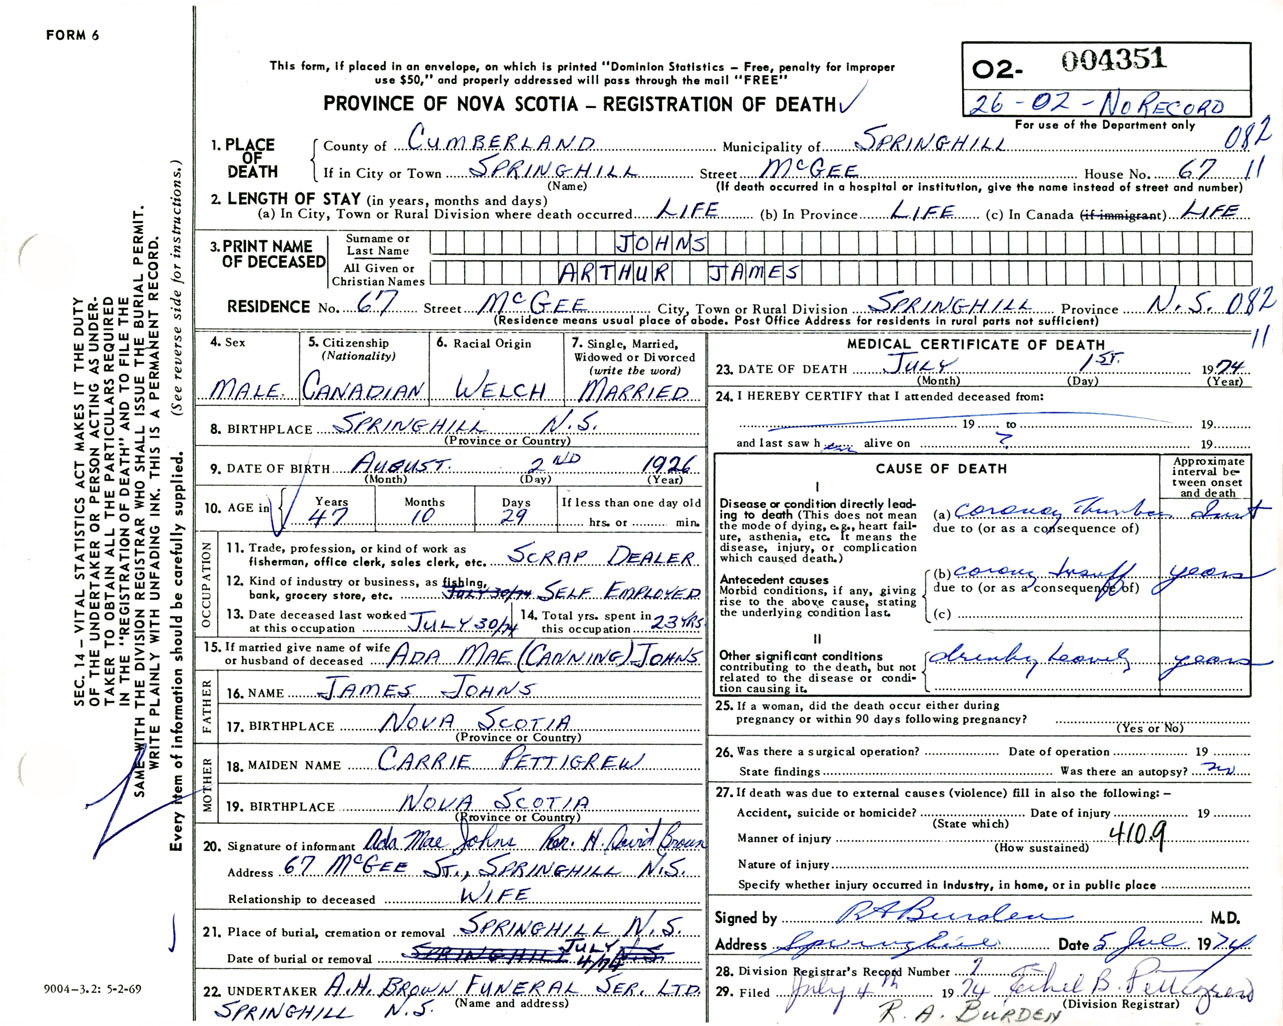 FORM 6
This form, if placed in an envelope, on which is printed "Dominion Statistics – Free, penalty for improper
use $50," and properly addressed will pass through the mail "FREE"
PROVINCE OF NOVA SCOTIA – REGISTRATION OF DEATH
O2- 004351
26-02-NO RECORD
For use of the Department only
082
11
1. PLACE OF DEATH
County of CUMBERLAND Municipality of SPRINGHILL
If in City or Town SPRINGHILL Street McGEE House No. 67
(Name) (If death occurred in a hospital or institution, give the name instead of street and number)
2. LENGTH OF STAY (in years, months and days)
(a) In City, Town or Rural Division where death occurred LIFE (b) In Province LIFE (c) In Canada (if immigrant) LIFE
3. PRINT NAME OF DECEASED
Surname or Last Name JOHNS
All Given or Christian Names ARTHUR JAMES
RESIDENCE No. 67 Street McGEE City, Town or Rural Division SPRINGHILL Province N.S. 082
(Residence means usual place of abode. Post Office Address for residents in rural parts not sufficient)
11
4. Sex
MALE
5. Citizenship
(Nationality)
CANADIAN
6. Racial Origin
WELCH
7. Single, Married,
Widowed or Divorced
(write the word)
MARRIED
8. BIRTHPLACE SPRINGHILL N.S.
(Province or Country)
9. DATE OF BIRTH AUGUST 2ND 1926
(Month) (Day) (Year)
10. AGE in
Years 47 Months 10 Days 29 If less than one day old
hrs. or min.
OCCUPATION
11. Trade, profession, or kind of work as
fisherman, office clerk, sales clerk, etc. SCRAP DEALER
12. Kind of industry or business, as fishing,
bank, grocery store, etc. JULY 30/74 SELF EMPLOYED
13. Date deceased last worked
at this occupation JULY 30/74
14. Total yrs. spent in
this occupation 23 YRS.
15. If married give name of wife
or husband of deceased ADA MAE (CANNING) JOHNS
FATHER
16. NAME JAMES JOHNS
17. BIRTHPLACE NOVA SCOTIA
(Province or Country)
MOTHER
18. MAIDEN NAME CARRIE PETTIGREW
19. BIRTHPLACE NOVA SCOTIA
(Province or Country)
20. Signature of informant Ada Mae Johns Rev. H. David Brown
Address 67 McGEE ST., SPRINGHILL N.S.
Relationship to deceased WIFE
21. Place of burial, cremation or removal SPRINGHILL N.S.
Date of burial or removal SPRINGHILL JULY 4/74 N.S.
22. UNDERTAKER A.H. BROWN FUNERAL SER. LTD.
(Name and address)
SPRINGHILL N.S.
MEDICAL CERTIFICATE OF DEATH
23. DATE OF DEATH JULY 1ST. 1974
(Month) (Day) (Year)
24. I HEREBY CERTIFY that I attended deceased from:
19 to 19
and last saw h im alive on ? 19
CAUSE OF DEATH
Approximate
interval be-
tween onset
and death
I
Disease or condition directly lead-
ing to death (This does not
mean the mode of dying, e.g., heart fail-
ure, asthenia, etc. It means the
disease, injury, or complication
which caused death.)
(a) coronary inst
due to (or as a consequence of)
Antecedent causes
Morbid conditions, if any, giving
rise to the above cause, stating
the underlying condition last.
(b) coronary insuff years
due to (or as a consequence of)
(c)
II
Other significant conditions
contributing to the death, but not
related to the disease or condi-
tion causing it.
drinking heavily years
25. If a woman, did the death occur either during
pregnancy or within 90 days following pregnancy?
(Yes or No)
26. Was there a surgical operation? Date of operation 19
State findings Was there an autopsy? no
27. If death was due to external causes (violence) fill in also the following: –
Accident, suicide or homicide? Date of injury 19
(State which)
Manner of injury 410.9
(How sustained)
Nature of injury
Specify whether injury occurred in Industry, in home, or in public place
Signed by RA Burden M.D.
Address Springhill Date 5 Jul 1974
28. Division Registrar's Record Number
29. Filed July 4th 1974 Ethel B. Pettigrew
(Division Registrar)
R. A. BURDEN
SEC. 14 – VITAL STATISTICS ACT MAKES IT THE DUTY
OF THE UNDERTAKER OR PERSON ACTING AS UNDER-
TAKER TO OBTAIN ALL THE PARTICULARS REQUIRED
IN THE "REGISTRATION OF DEATH" AND TO FILE THE
SAME WITH THE DIVISION REGISTRAR WHO SHALL ISSUE THE BURIAL PERMIT.
WRITE PLAINLY WITH UNFADING INK. THIS IS A PERMANENT RECORD.
Every item of information should be carefully supplied. (See reverse side for instructions.)
9004-3.2: 5-2-69